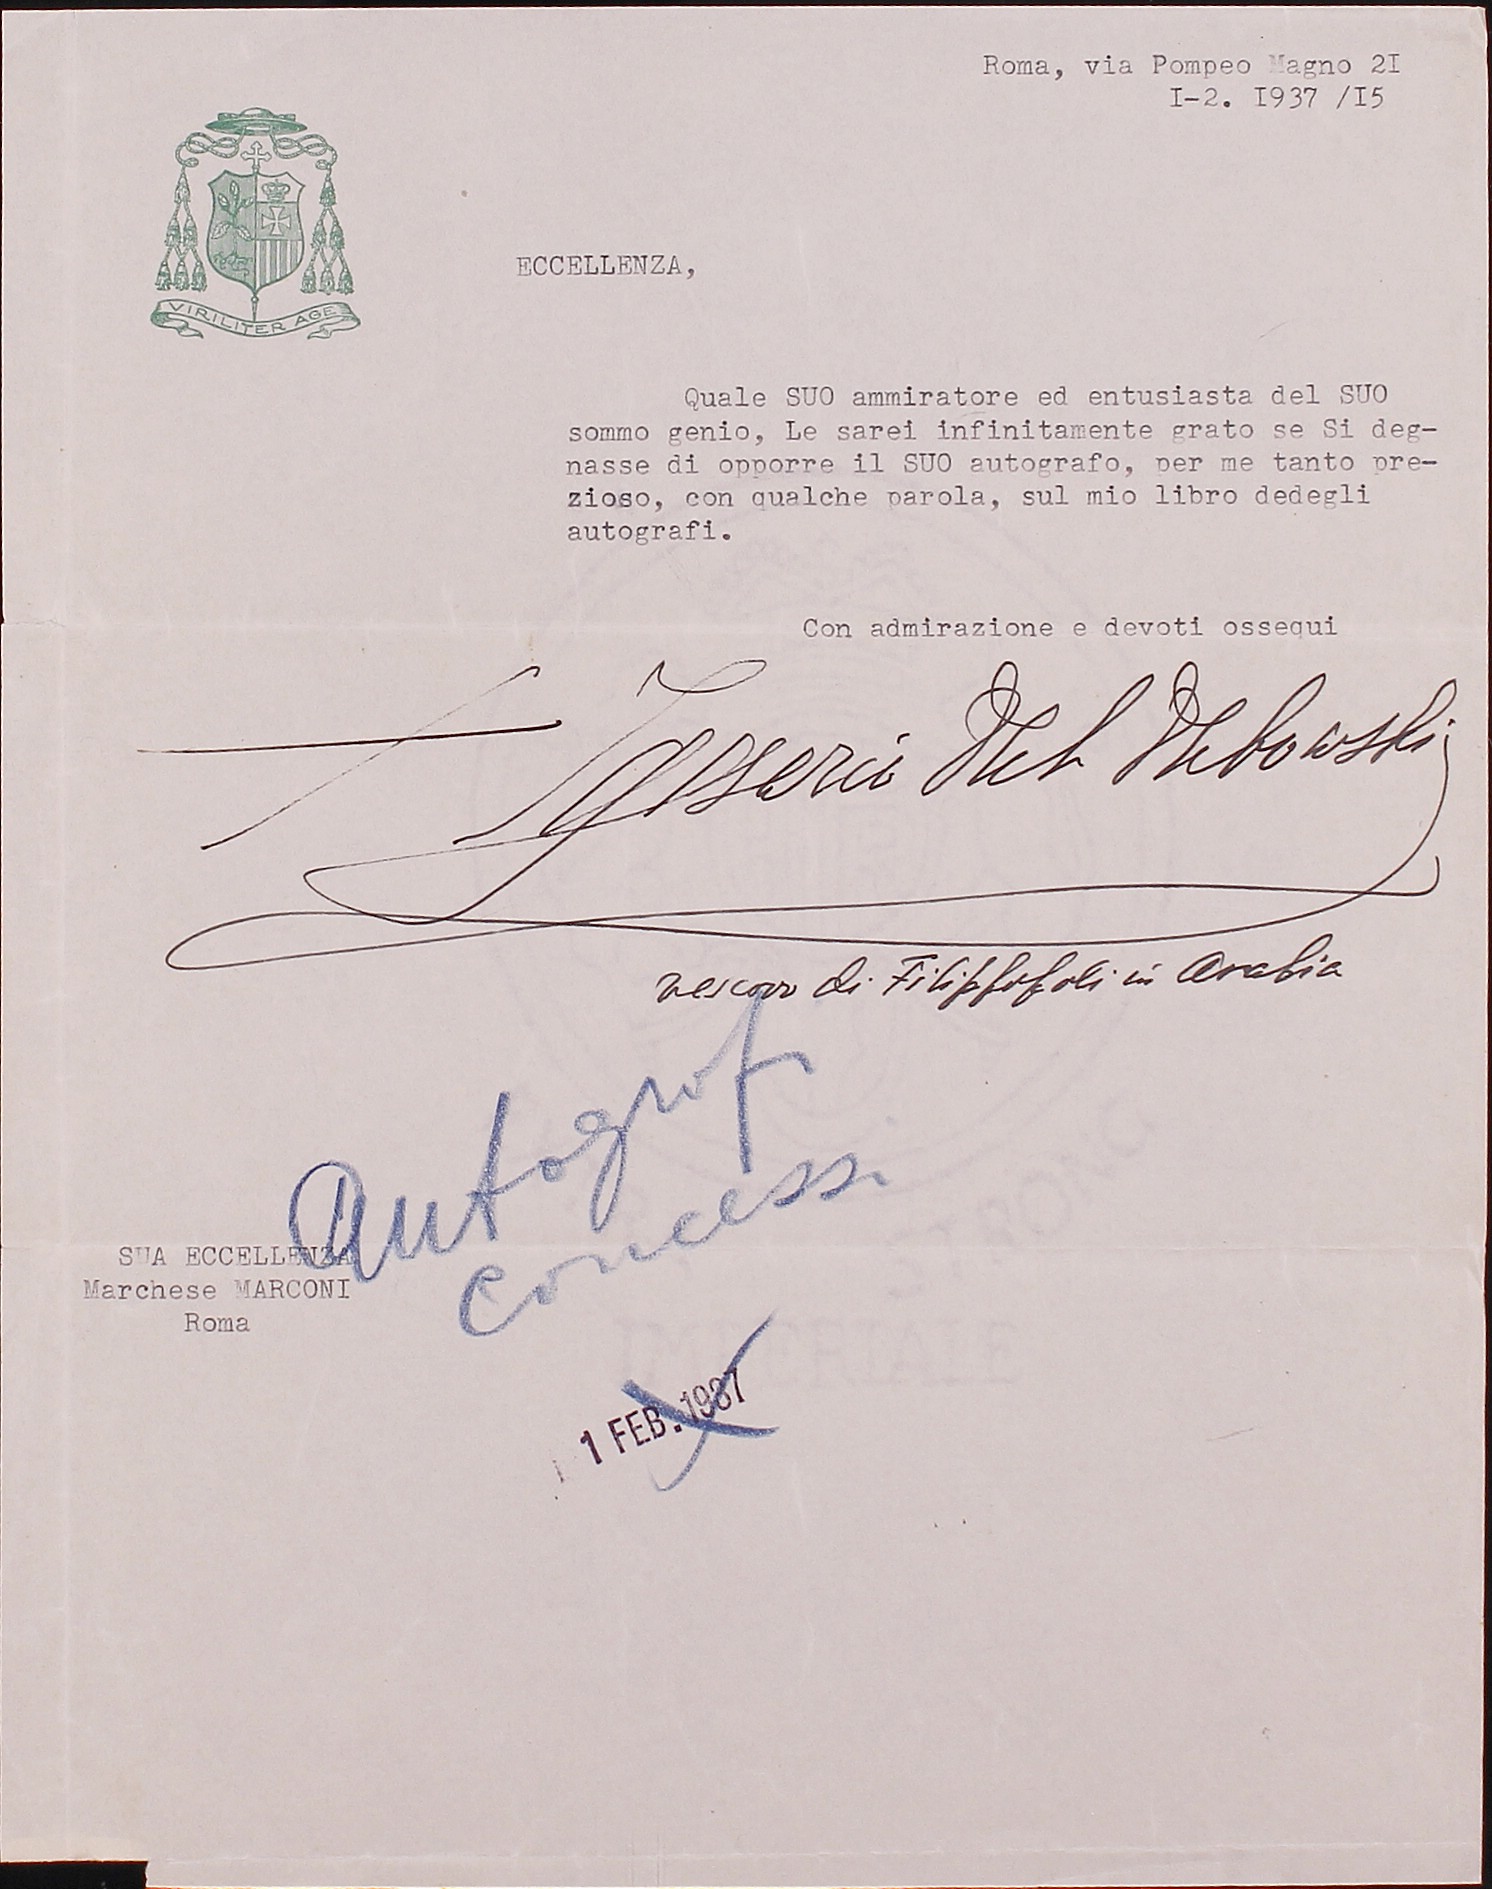 Roma, via Pompeo Magno 2I
I-2. I937 /I5
VIRILITER AGE
ECCELLENZA,
Quale SUO ammiratore ed entusiasta del SUO
sommo genio, Le sarei infinitamente grato se Si deg-
nasse di opporre il SUO autografo, per me tanto pre-
zioso, con qualche parola, sul mio libro dedegli
autografi.
Con admirazione e devoti ossequi
vescovo di Filippopoli in Arabia
Autograf
concessi
SUA ECCELLENZA
Marchese MARCONI
Roma
1 FEB. 1937